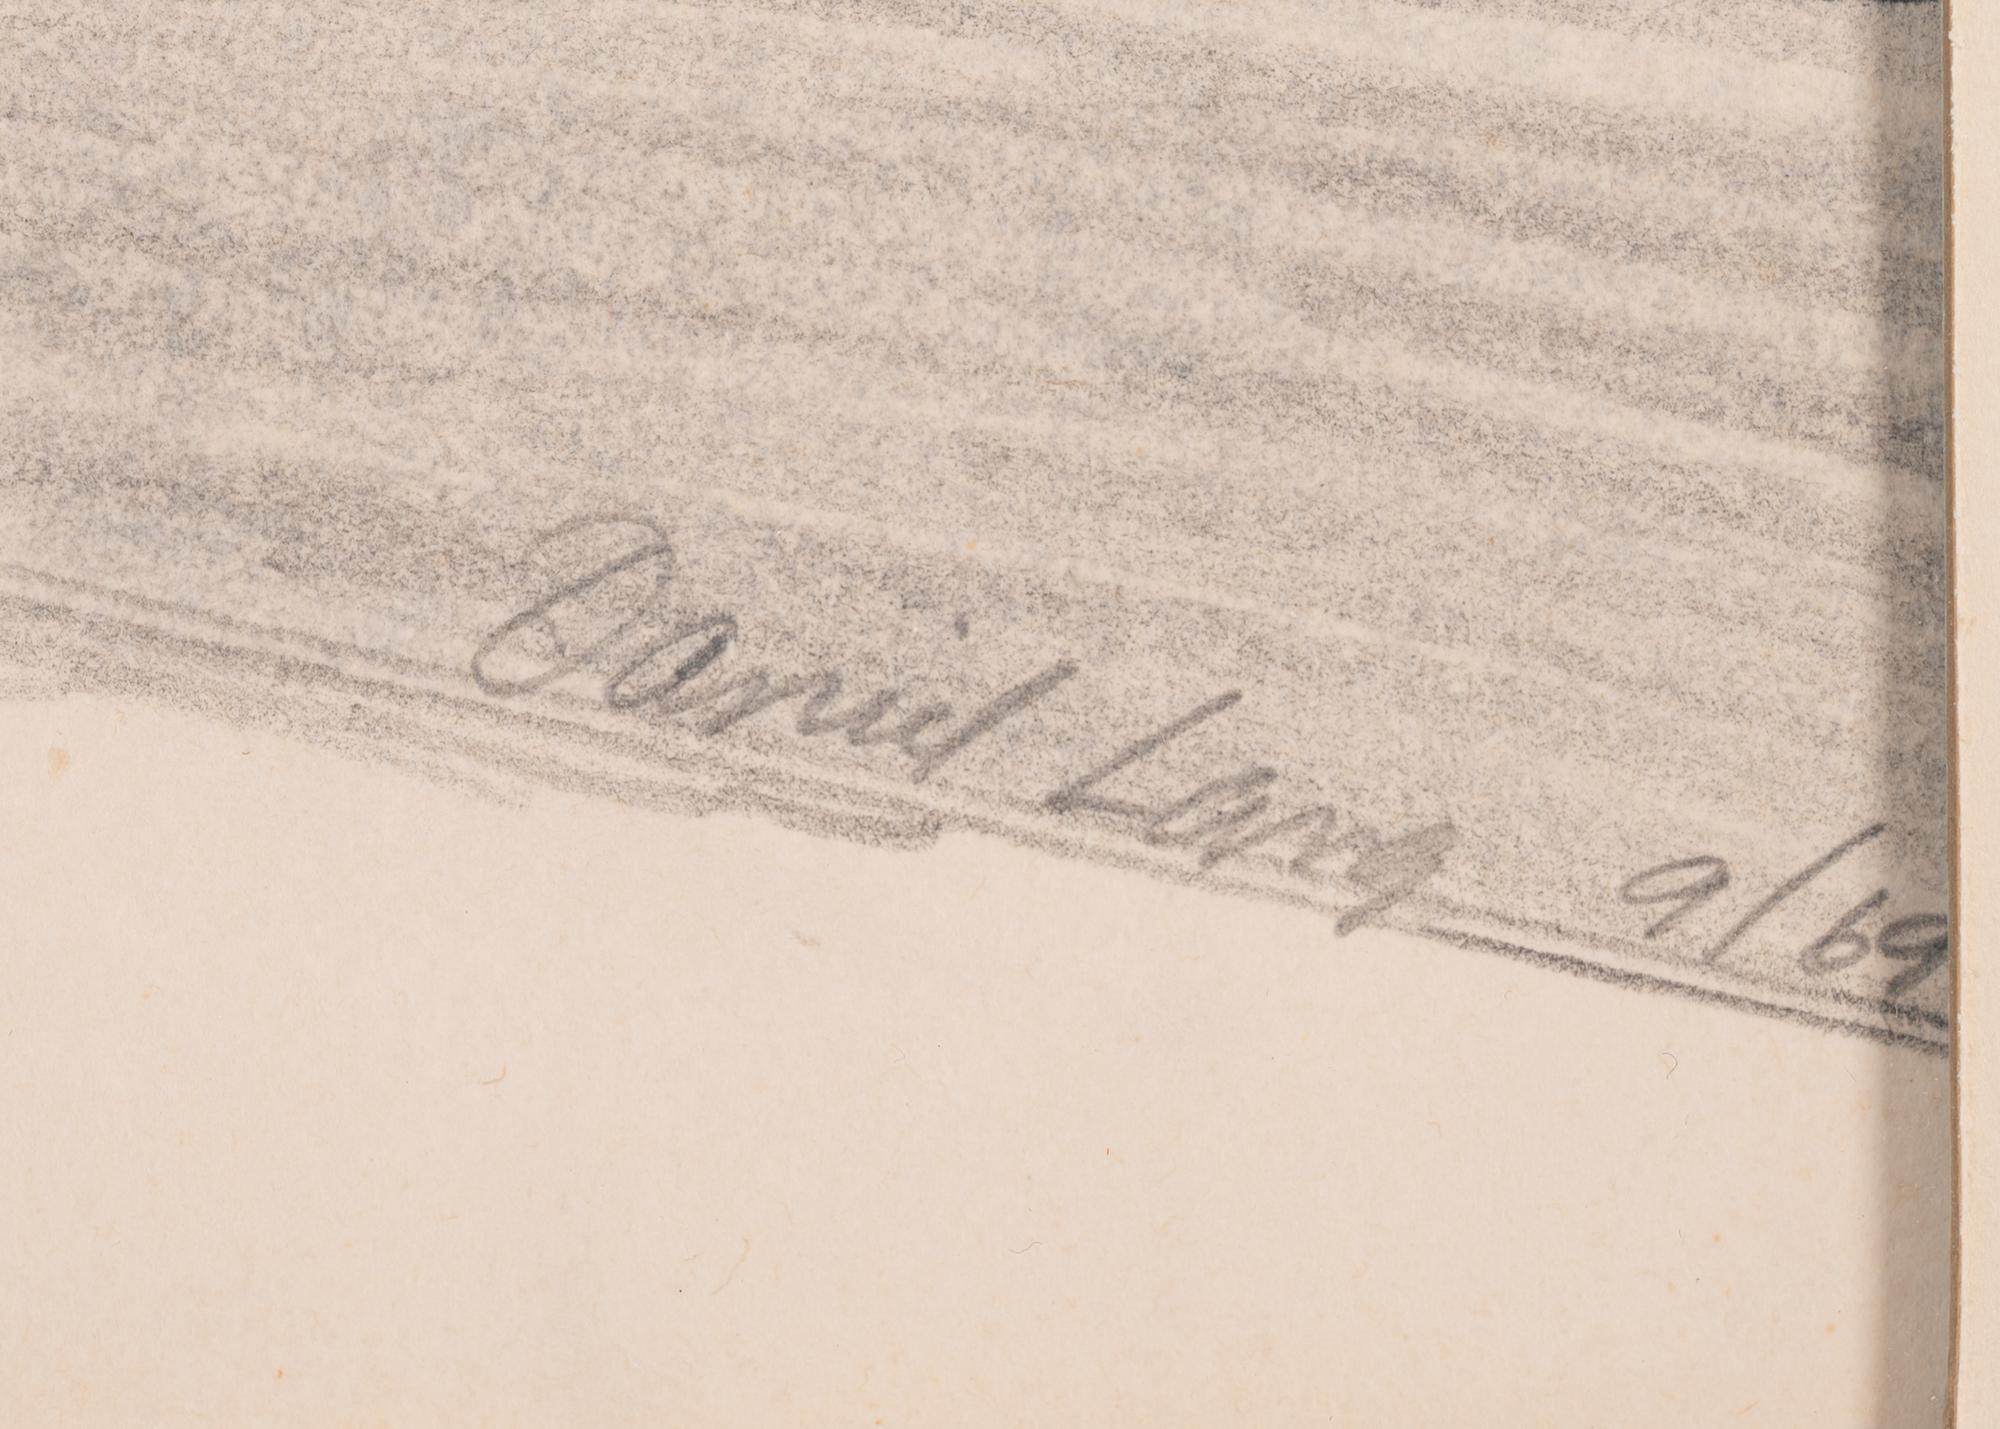 Daniel Lang 9/69